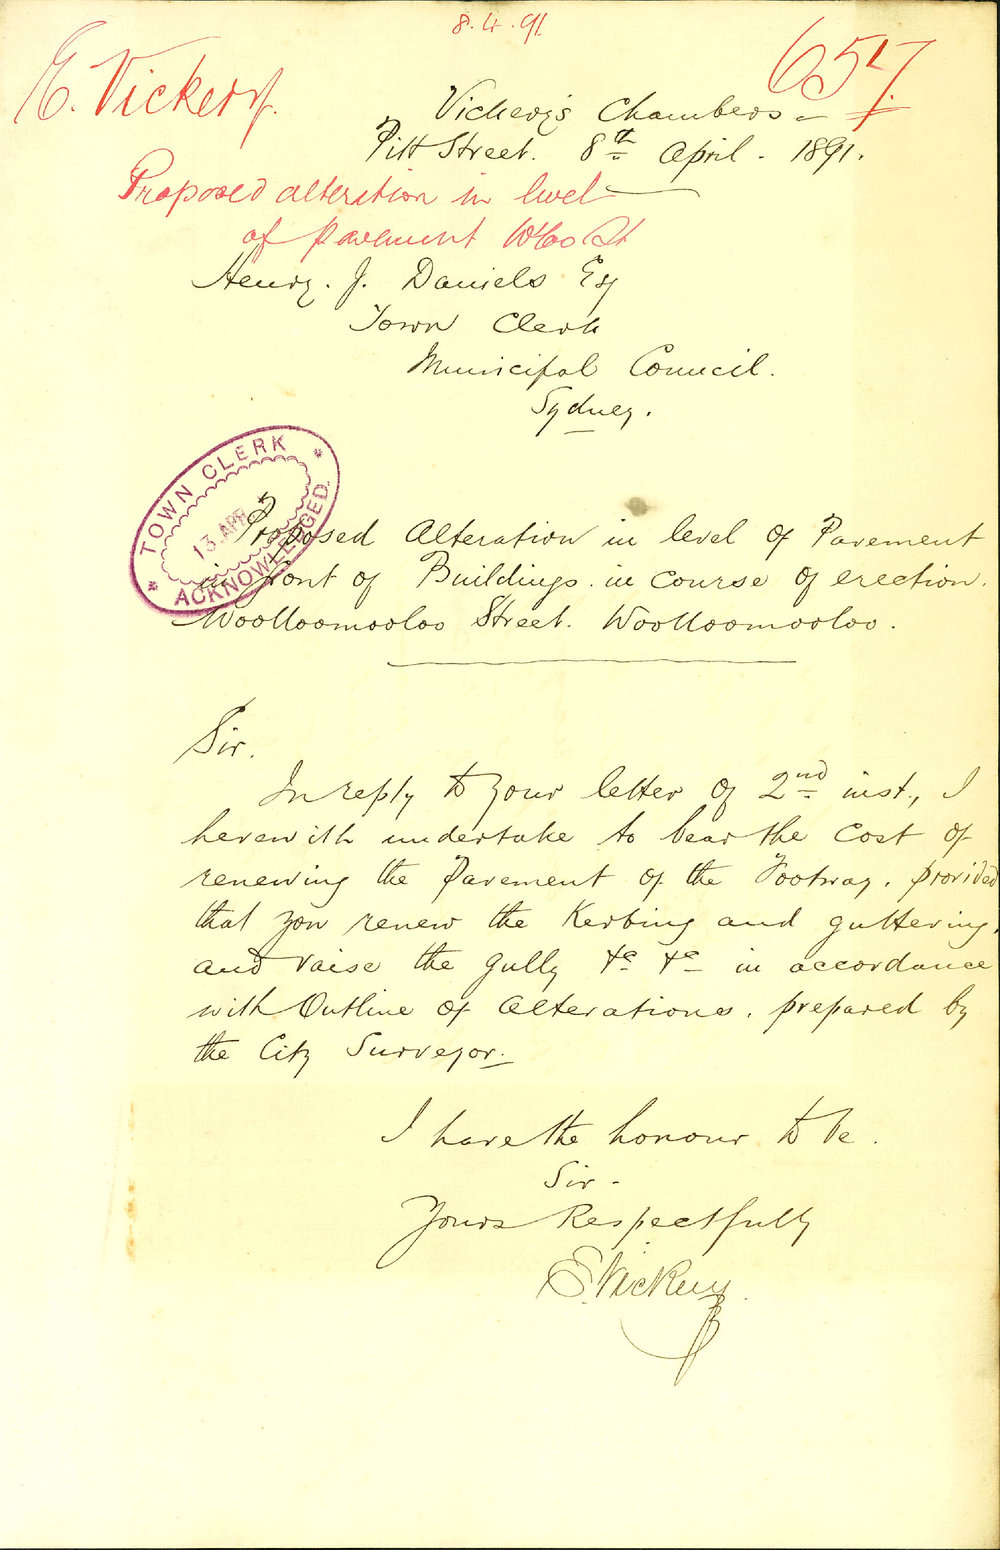 8.4.91
E. Vickery.
657
Vickery's Chambers -
Pitt Street. 8th April. 1891.
Proposed alteration in level
of pavement W'loo St
Henry. J. Daniels Esq
Town Clerk
Municipal Council.
Sydney.
TOWN CLERK
13 APR
ACKNOWLEDGED.
Proposed Alteration in level of Pavement
in front of Buildings. in course of erection.
Woolloomooloo Street. Woolloomooloo.
Sir.
In reply to your letter of 2nd inst., I
herewith undertake to bear the Cost of
renewing the Pavement of the Footway. provided
that you renew the Kerbing and guttering,
and raise the gully &c &c in accordance
with Outline of Alterations. prepared by
the City Surveyor.
I have the honour to be.
Sir -
Yours Respectfully
E. Vickery